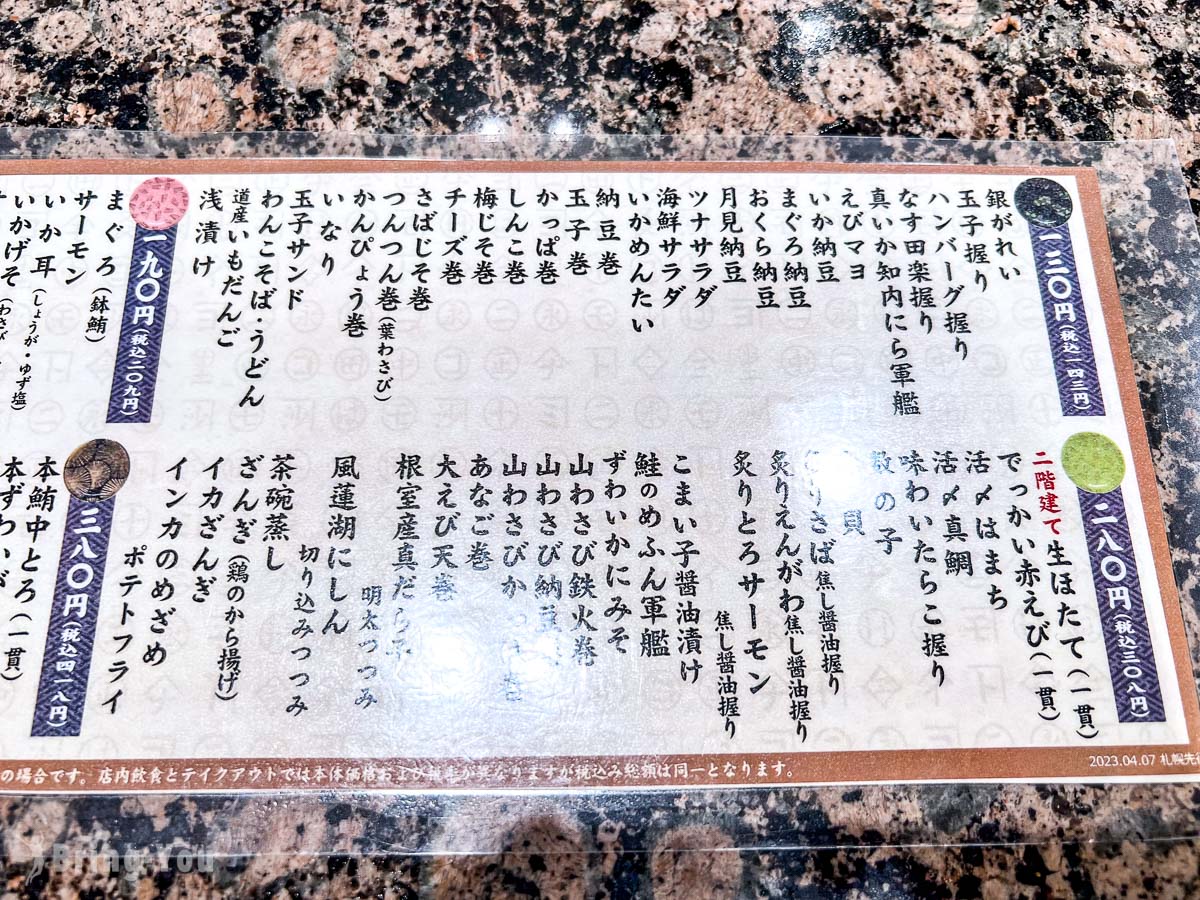 一三〇円(税込一四三円)
銀がれい
玉子握り
ハンバーグ握り
なす田楽握り
真いか知内にら軍艦
えびマヨ
いか納豆
まぐろ納豆
おくら納豆
月見納豆
ツナサラダ
海鮮サラダ
いかめんたい
納豆巻
玉子巻
かっぱ巻
しんこ巻
梅じそ巻
チーズ巻
さばじそ巻
つんつん巻(葉わさび)
かんぴょう巻
いなり
玉子サンド
わんこそば・うどん
道産いもだんご
浅漬け
一九〇円(税込二〇九円)
まぐろ(鉢鮪)
サーモン
いか耳(しょうが・ゆず塩)
いかげそ(わさび
二八〇円(税込三〇八円)
二階建て生ほたて(一貫)
でっかい赤えび(一貫)
活〆はまち
活〆真鯛
味わいたらこ握り
数の子
貝
りさば焦し醤油握り
炙りえんがわ焦し醤油握り
炙りとろサーモン
焦し醤油握り
こまい子醤油漬け
鮭のめふん軍艦
ずわいかにみそ
山わさび鉄火巻
山わさび納豆
山わさびか 巻
あなご巻
大えび天巻
根室産真だら
明太つつみ
風蓮湖にしん
切り込みつつみ
茶碗蒸し
ざんぎ(鶏のから揚げ)
イカざんぎ
インカのめざめ
ポテトフライ
三八〇円(税込四一八円)
本鮪中とろ(一貫)
本ずわいが
の場合です。店内飲食とテイクアウトでは本体価格および税率が異なりますが税込み総額は同一となります。
2023.04.07 札幌先行
Bring You